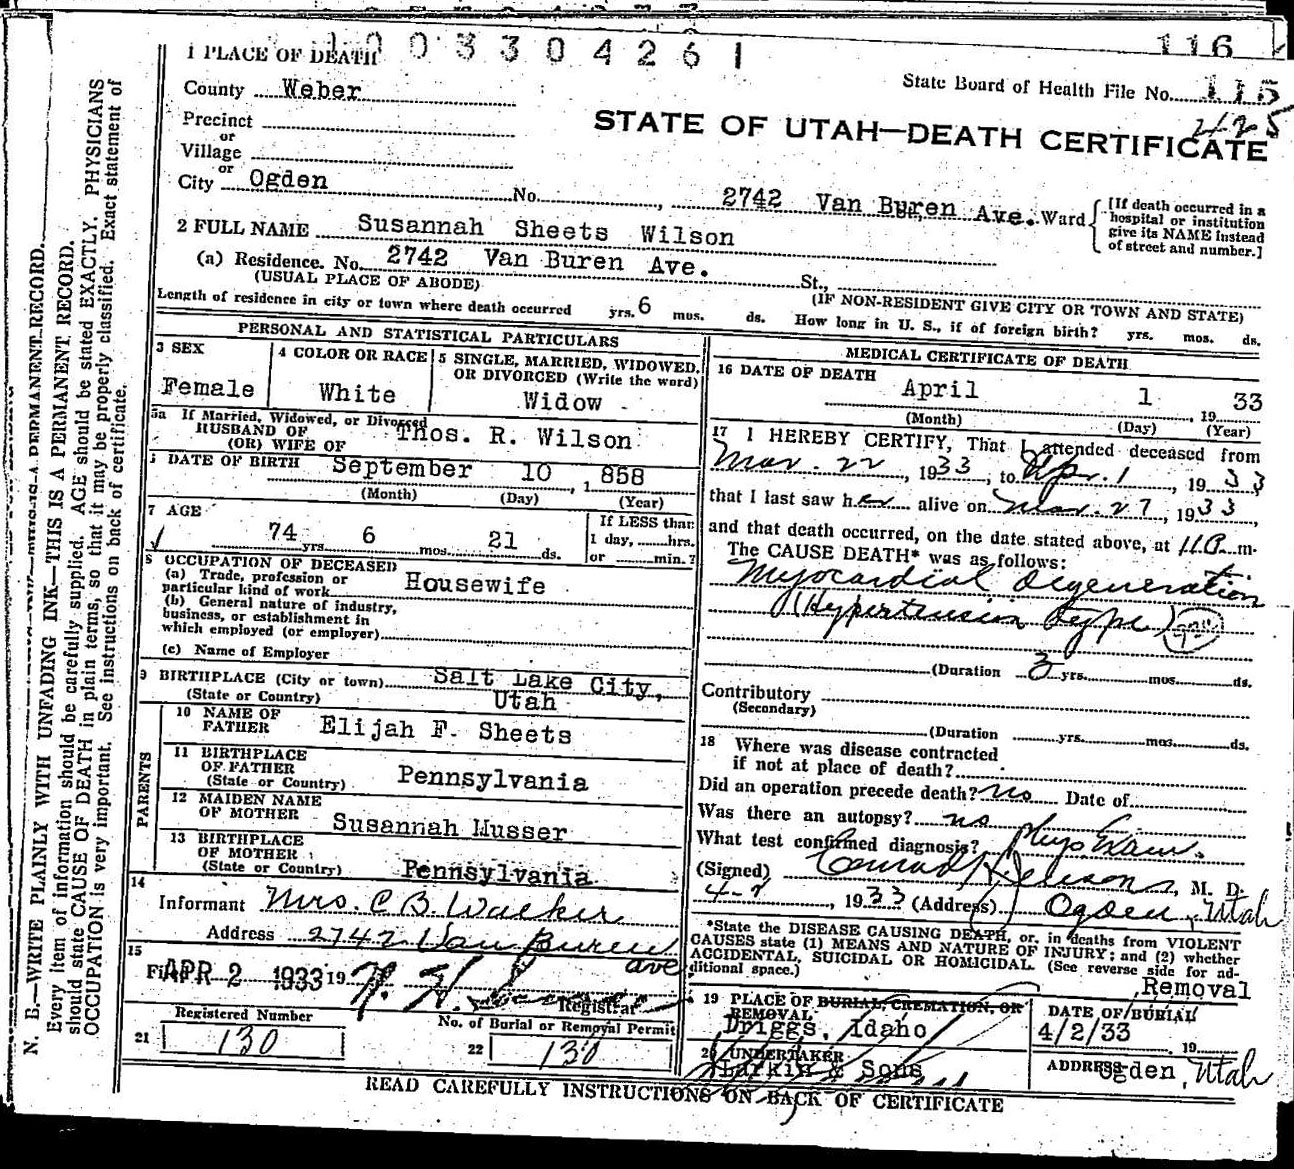 1003304261
116
1 PLACE OF DEATH
State Board of Health File No. 115
425
County Weber
STATE OF UTAH—DEATH CERTIFICATE
Precinct
or
Village
or
City Ogden No. , 2742 Van Buren Ave. Ward
[If death occurred in a hospital or institution give its NAME instead of street and number.]
2 FULL NAME Susannah Sheets Wilson
(a) Residence. No. 2742 Van Buren Ave. St.,
(USUAL PLACE OF ABODE) (IF NON-RESIDENT GIVE CITY OR TOWN AND STATE)
Length of residence in city or town where death occurred yrs. 6 mos. ds. How long in U. S., if of foreign birth? yrs. mos. ds.
PERSONAL AND STATISTICAL PARTICULARS
3 SEX
Female
4 COLOR OR RACE
White
5 SINGLE, MARRIED, WIDOWED, OR DIVORCED (Write the word)
Widow
5a If Married, Widowed, or Divorced
HUSBAND OF
(OR) WIFE OF
Thos. R. Wilson
DATE OF BIRTH September 10 , 1858
(Month) (Day) (Year)
7 AGE
74 yrs. 6 mos. 21 ds.
If LESS than
1 day, hrs.
or min.?
8 OCCUPATION OF DECEASED
(a) Trade, profession or
particular kind of work Housewife
(b) General nature of industry,
business, or establishment in
which employed (or employer)
(c) Name of Employer
9 BIRTHPLACE (City or town) Salt Lake City,
(State or Country) Utah
PARENTS
10 NAME OF
FATHER Elijah F. Sheets
11 BIRTHPLACE
OF FATHER
(State or Country) Pennsylvania
12 MAIDEN NAME
OF MOTHER Susannah Musser
13 BIRTHPLACE
OF MOTHER
(State or Country) Pennsylvania
14
Informant Mrs. C B. Walker
Address 2742 Van Buren
ave
15
Filed APR 2 1933 19
Registrar
Registered Number
21 130
No. of Burial or Removal Permit
22 130
MEDICAL CERTIFICATE OF DEATH
16 DATE OF DEATH
April 1 , 1933
(Month) (Day) (Year)
17 I HEREBY CERTIFY, That I attended deceased from
Mar. 22 , 1933, to Apr. 1 , 1933
that I last saw her alive on Mar. 27, 1933,
and that death occurred, on the date stated above, at 11 P m.
The CAUSE DEATH* was as follows:
Myocardial Degeneration
(Hypertension type)
(Duration 3 yrs. mos. ds.
Contributory
(Secondary)
(Duration yrs. mos. ds.
18 Where was disease contracted
if not at place of death?
Did an operation precede death? no Date of
Was there an autopsy? no
What test confirmed diagnosis? Phys Exam.
(Signed) Conrad H. Jenson, M. D.
4-2, 1933 (Address) Ogden, Utah
*State the DISEASE CAUSING DEATH, or, in deaths from VIOLENT
CAUSES state (1) MEANS AND NATURE OF INJURY; and (2) whether
ACCIDENTAL, SUICIDAL OR HOMICIDAL. (See reverse side for additional space.)
19 PLACE OF BURIAL, CREMATION, OR
REMOVAL
Driggs, Idaho
Removal
DATE OF BURIAL
4/2/33 19
20 UNDERTAKER
Larkin & Sons
ADDRESS
Ogden, Utah
READ CAREFULLY INSTRUCTIONS ON BACK OF CERTIFICATE
N. B.—WRITE PLAINLY WITH UNFADING INK—THIS IS A PERMANENT RECORD.
Every item of information should be carefully supplied. AGE should be stated EXACTLY. PHYSICIANS
should state CAUSE OF DEATH in plain terms, so that it may be properly classified. Exact statement of
OCCUPATION is very important. See instructions on back of certificate.